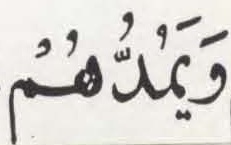 وَيَمُدُّهُمُ